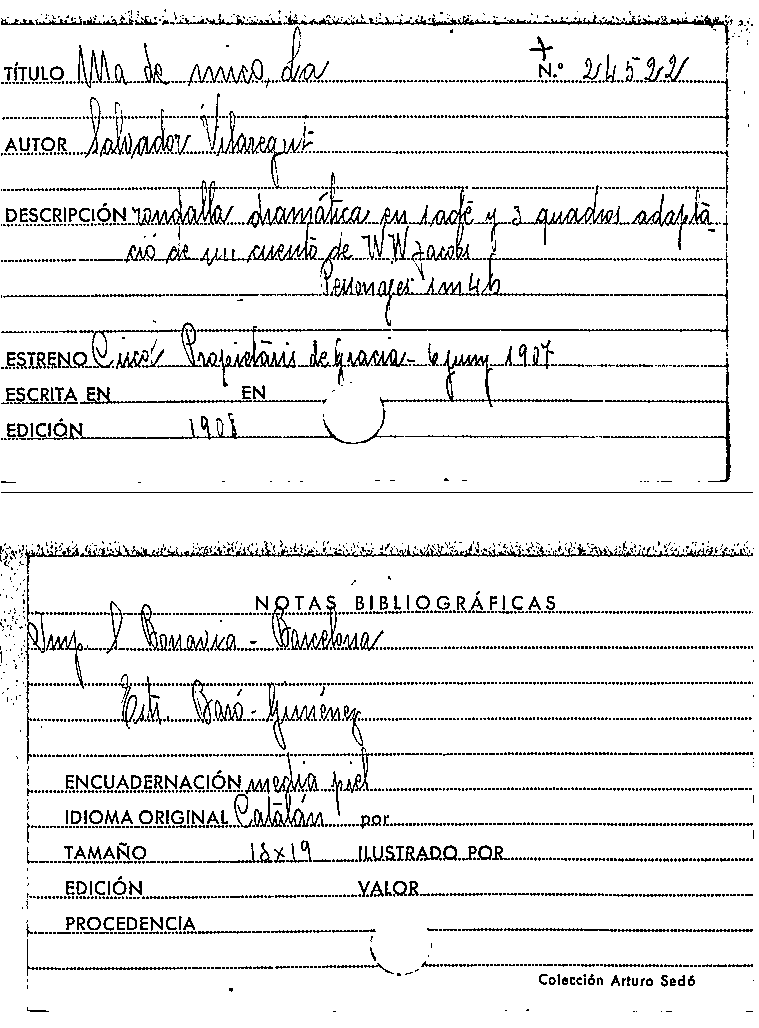 TÍTULO Ma de mico, La N.º 24522
AUTOR Salvador Vilaregut
DESCRIPCIÓN rondalla dramática en 1 acte y 3 quadros adaptá-
ció de un cuento de W W Jacobs
Personages 1m 4h
ESTRENO Propietaris de Gracia - 6 juny 1907
ESCRITA EN EN
EDICIÓN 1908
NOTAS BIBLIOGRÁFICAS
Imp. S Bonavia - Barcelona
Estr. Baró - Giménez
ENCUADERNACIÓN media piel
IDIOMA ORIGINAL Catalán por
TAMAÑO 18x19 ILUSTRADO POR
EDICIÓN VALOR
PROCEDENCIA
Colección Arturo Sedó